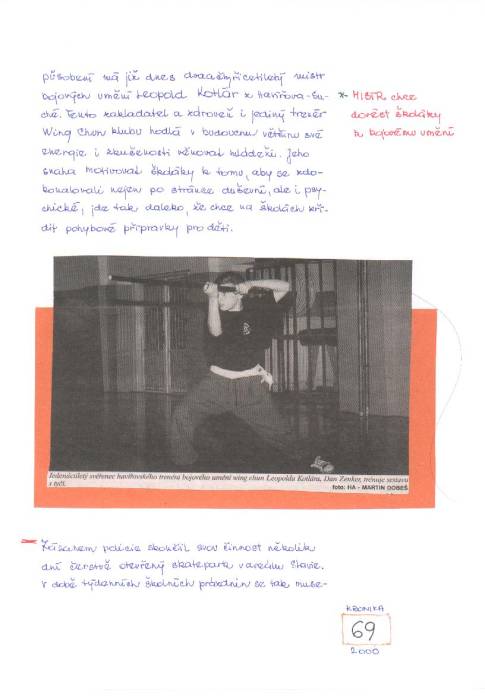 působení má již dnes dvaačtyřicetiletý mistr
bojových umění Leopold Kotlár z Havířova-Su-
ché. Tento zakladatel a zároveň i jediný trenér
Wing Chun klubu hodlá v budoucnu většinu své
energie i zkušenosti věnovat mládeži. Jeho
snaha motivovat školáky k tomu, aby se zdo-
konalovali nejen po stránce duševní, ale i psy-
chické, jde tak daleko, že chce na školách zří-
dit pohybové přípravky pro děti.
* MISTR chce
dovést školáky
k bojovému umění
Jedenáctiletý svěřenec havířovského trenéra bojového umění wing chun Leopolda Kotlára, Dan Zenker, trénuje sestavu
s tyčí.
foto: HA - MARTIN DOBEŠ
Zásahem policie skončil svou činnost několik
dní čerstvě otevřený skatepark v areálu Slavie.
V době týdenních školních prázdnin se tak muse-
KRONIKA
69
2000